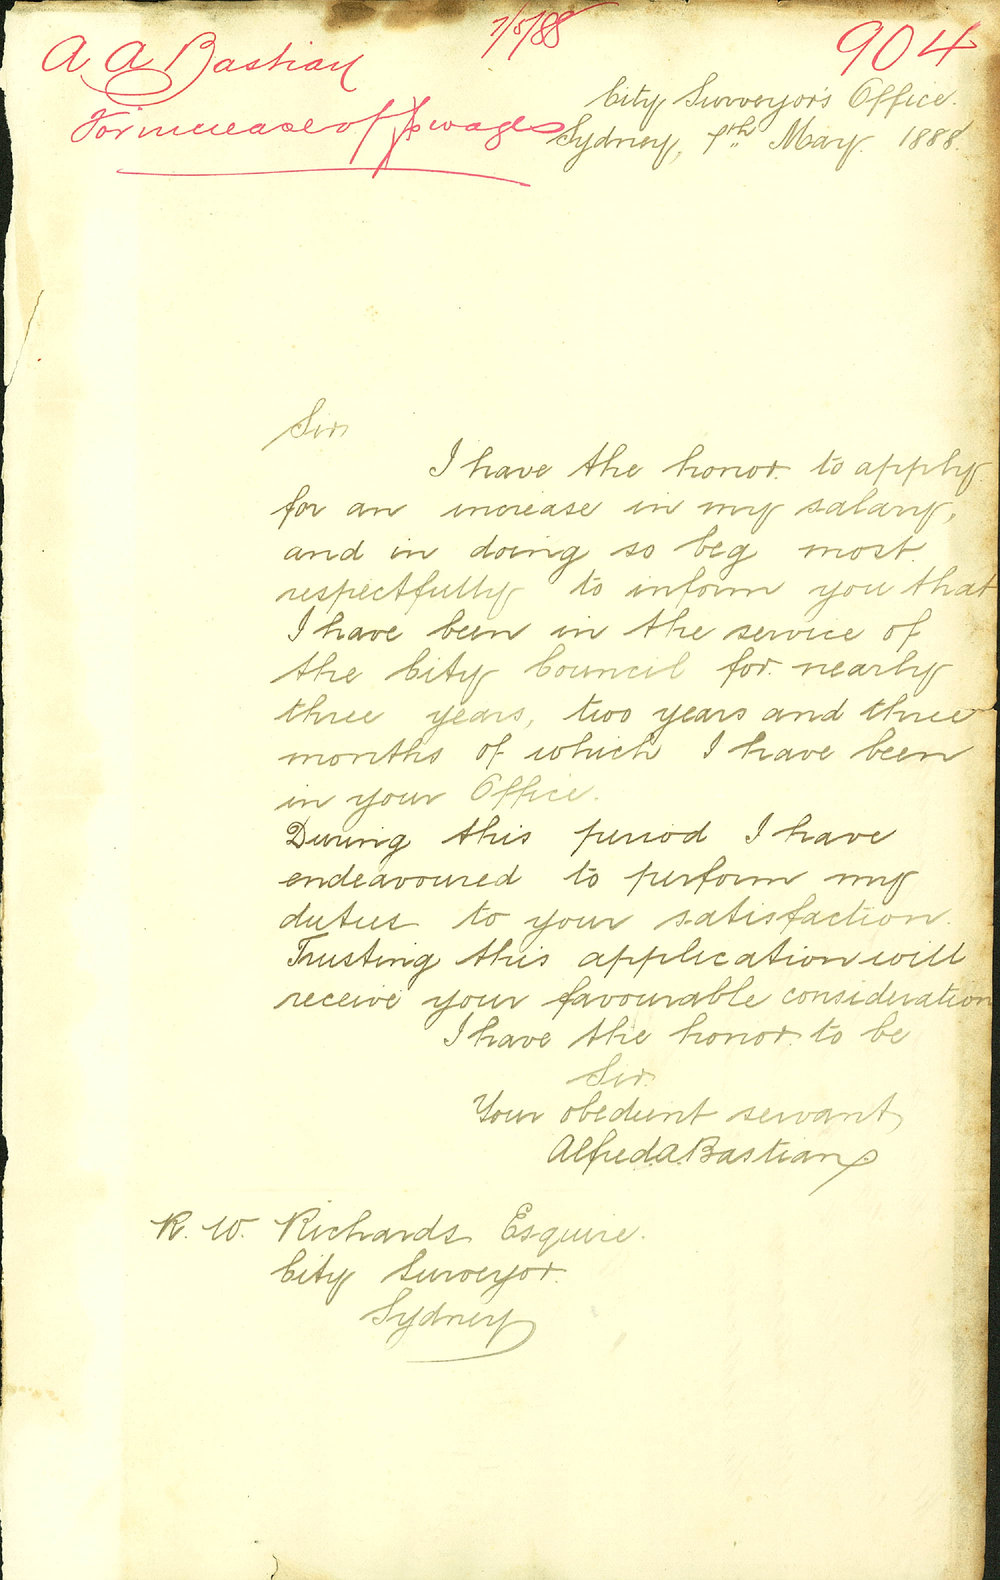 7/5/88
904
A A Bastian
For increase of wages
City Surveyor's Office.
Sydney, 7th May. 1888.
Sir
I have the honor to apply
for an increase in my salary,
and in doing so beg most
respectfully to inform you that
I have been in the service of
the City Council for nearly
three years, two years and three
months of which I have been
in your Office.
During this period I have
endeavoured to perform my
duties to your satisfaction.
Trusting this application will
receive your favourable consideration
I have the honor to be
Sir.
Your obedient servant,
Alfred A. Bastian
R. W. Richards Esquire.
City Surveyor.
Sydney